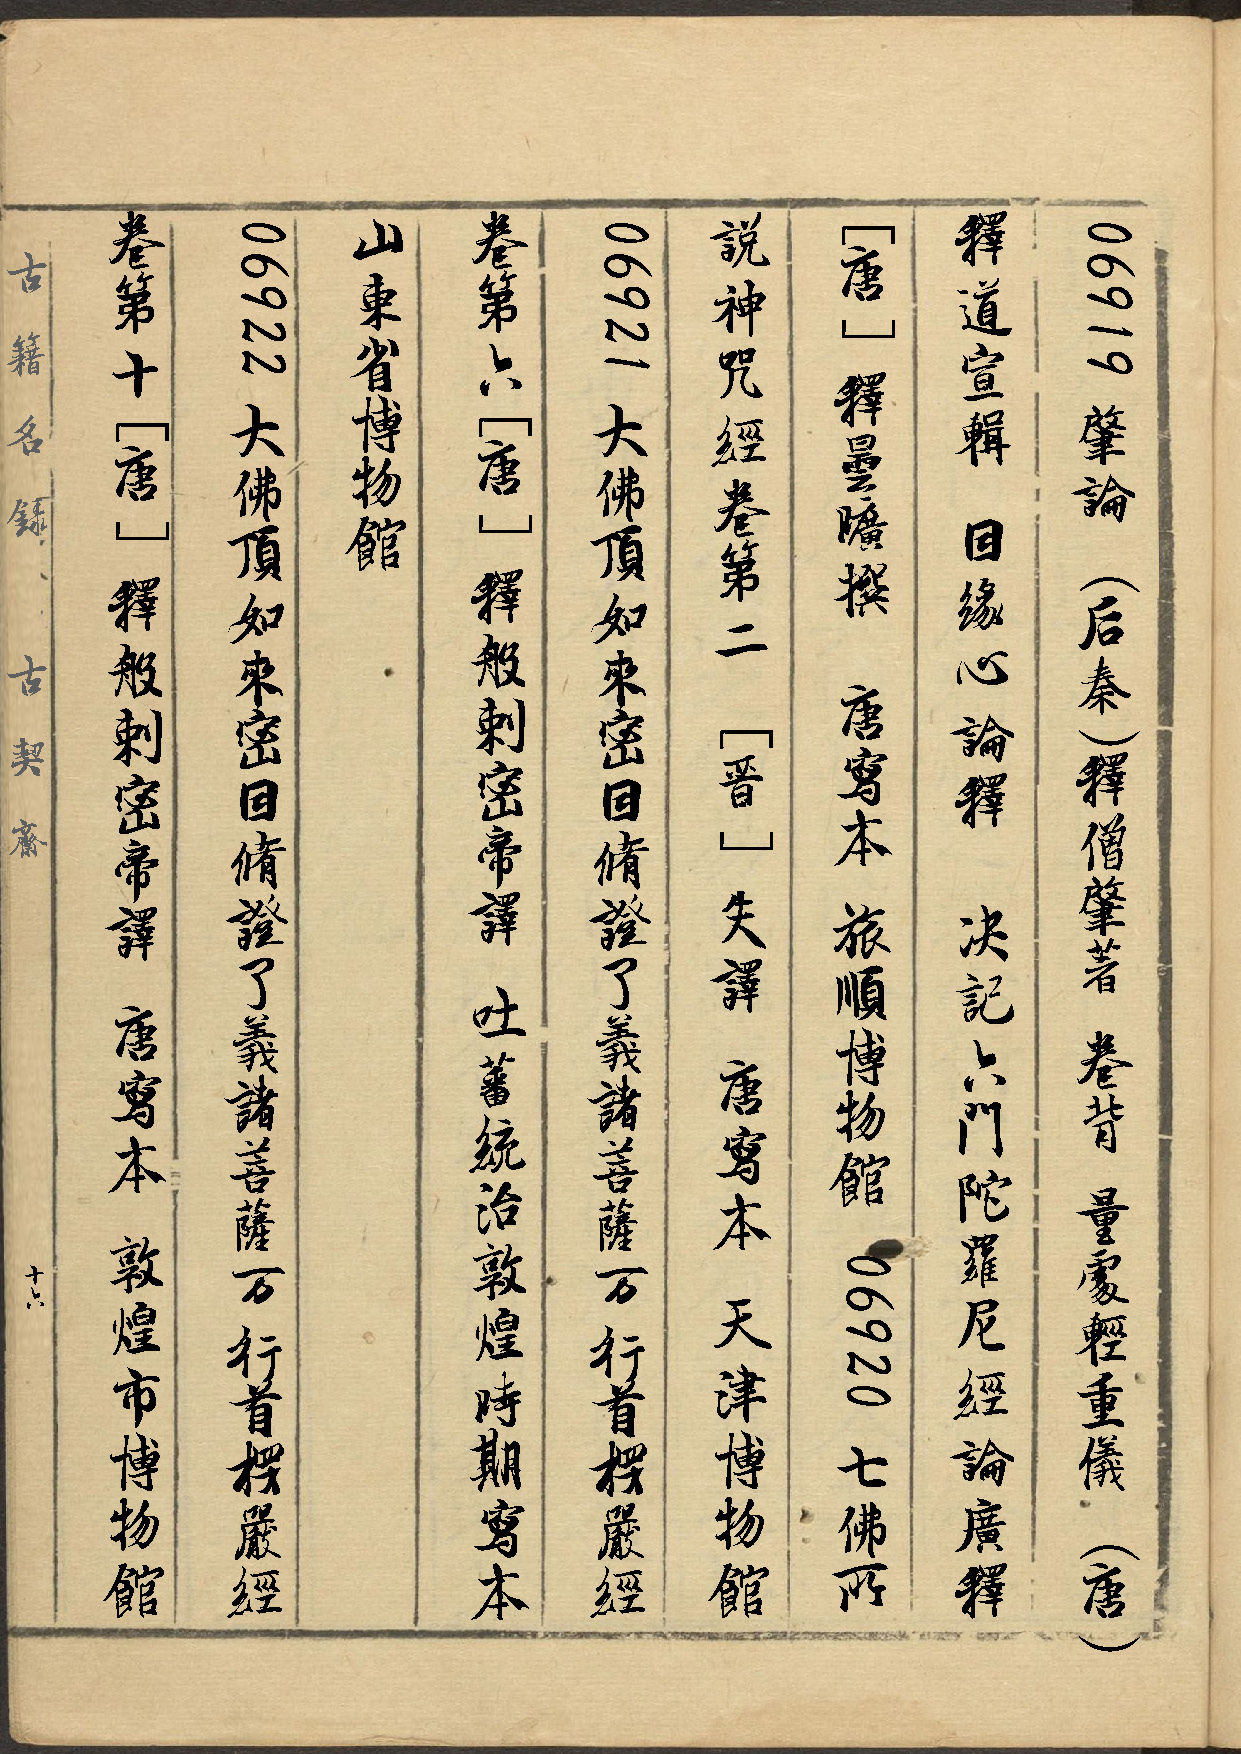 06919 肇論 (后秦)釋僧肇著 卷背 量處輕重儀 (唐)
釋道宣輯 因緣心論釋 决記六門陀羅尼經論廣釋
[唐] 釋曇曠撰 唐寫本 旅順博物館 06920 七佛所
說神咒經卷第二 [晋] 失譯 唐寫本 天津博物館
06921 大佛頂如來密因脩證了義諸菩薩万行首楞嚴經
卷第六[唐] 釋般刺密帝譯 吐蕃統治敦煌時期寫本
山東省博物館
06922 大佛頂如來密因脩證了義諸菩薩万行首楞嚴經
卷第十[唐] 釋般刺密帝譯 唐寫本 敦煌市博物館
古籍名録 古契齋
十六